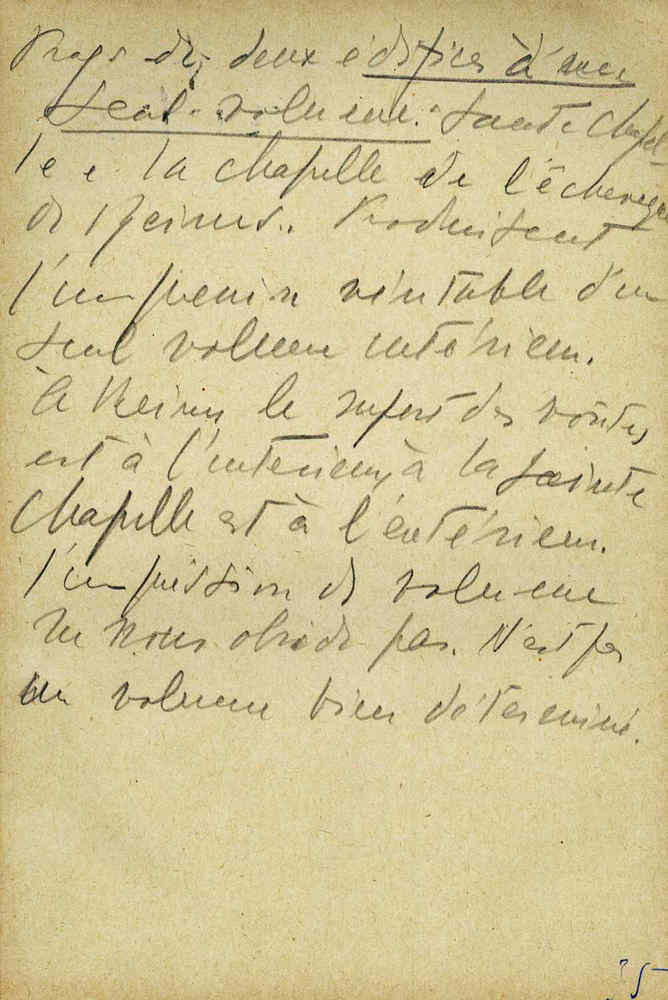 des deux édifices à un
seul volume. Sainte Chapel-
le et la chapelle de l'échevêque
de Reims. Produisent
l'impression véritable d'un
seul volume intérieur.
à Reims le support des voûtes
est à l'intérieur, à la Sainte
Chapelle est à l'extérieur.
l'impression de volume
ne nous obsède pas. N'est pas
un volume bien déterminé.